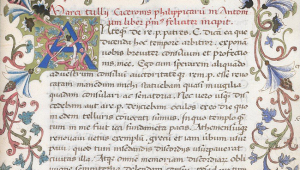 Marci Tullij Ciceronis philippicarū in Antoni
um liber prim' feliciter incipit.
Anteq̃ de .re. p. patres .C. dica ea que
dicenda hoc tempore arbitror. exponā
vobis breuiter consilium et profectio
nis mee. Ego cum sperarem aliquādo
ad vestrum consilium auctoritatē q3 rem .p. esse reuo
catam manendum michi statuebam quasi in vigilia
quadam consulari ac senatoria. Nec vero usq̃ dis
cedebam aut a .re. p. deijciebam oculos ex eo die quo
in edem telluris conuenti sumus. In quo templo q̃
tum in me fuit ieci fundamēta pacis. Atheniensiūq3
renouaui vetus exemplū. grecū et iam verbum usur
paui quo tum in sedandis discordijs usurpauerat
illa. Atq3 omnē memoriam discordiaꝝ obliui